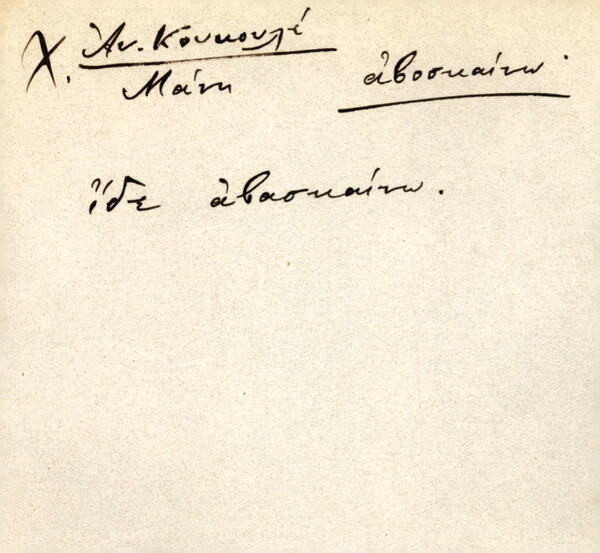 Χ. Ἀν. Κουκουλέ
Μάνη
ἀβοσκαίνω·
ἴδε ἀβασκαίνω.